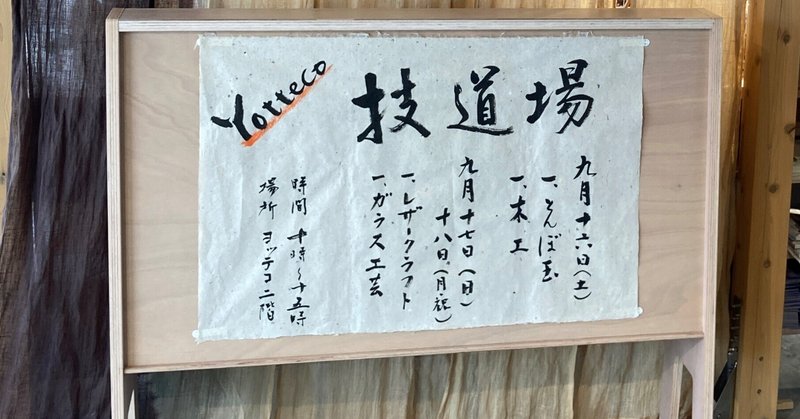 Yotteco
技道場
九月十六日(土)
一、とんぼ玉
一、木工
九月十七日(日)
十八日(月・祝)
一、レザークラフト
一、ガラス工芸
時間 十時〜十五時
場所 ヨッテコ二階